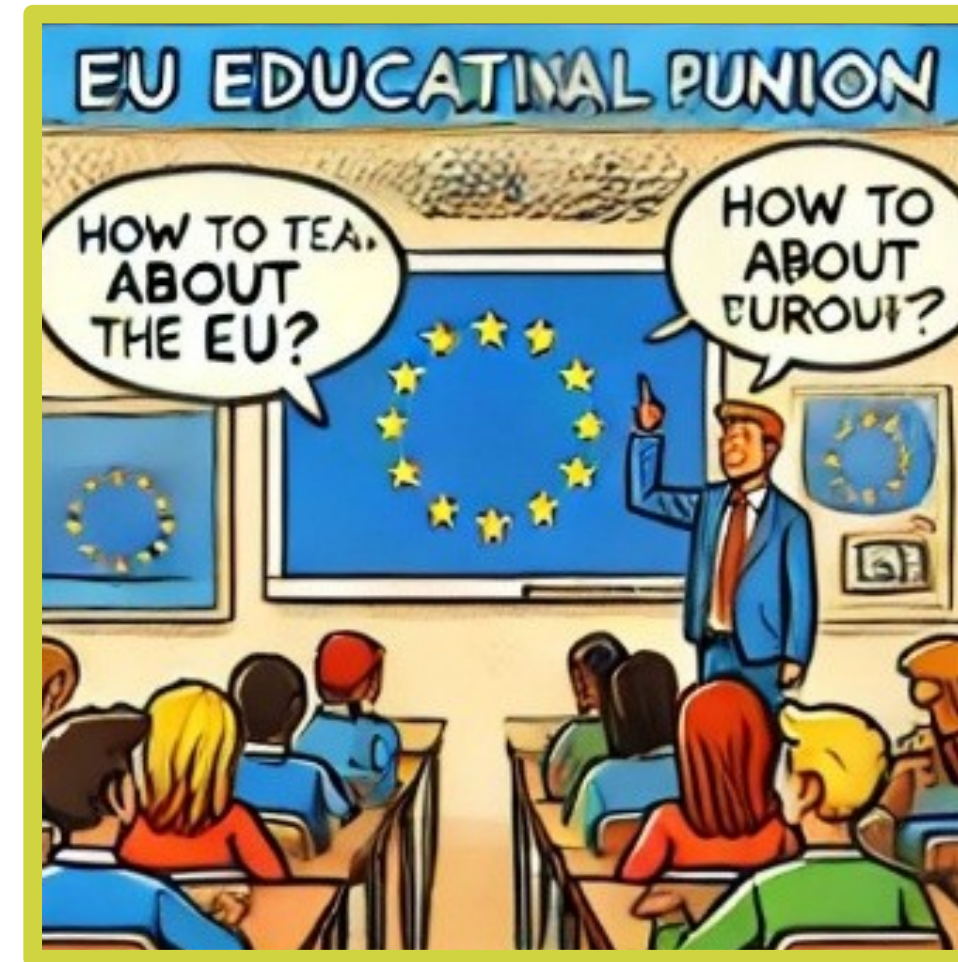 EU EDUCATINAL PUNION
HOW TO TEA.
ABOUT
THE EU?
HOW TO
ABOUT